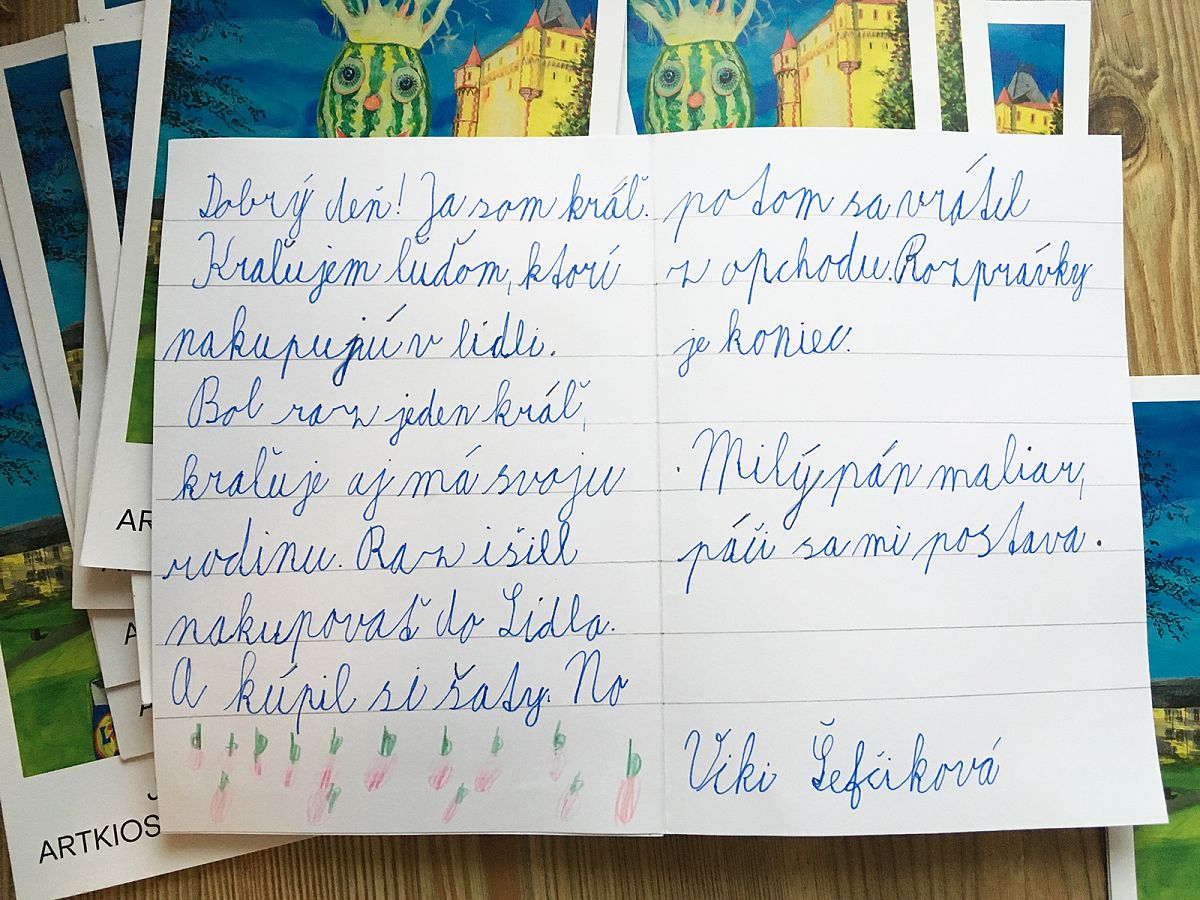 Dobrý deň! Ja som kráľ.
Kraľujem ľuďom, ktorí
nakupujú v lidli.
Bol raz jeden kráľ,
kraľuje aj má svoju
rodinu. Raz išiel
nakupovať do Lidla.
A kúpil si šaty. No
potom sa vrátil
z opchodu. Rozprávky
je koniec.
Milý pán maliar,
páči sa mi postava.
Viki Šefčiková
AR
A
ARTKIOS